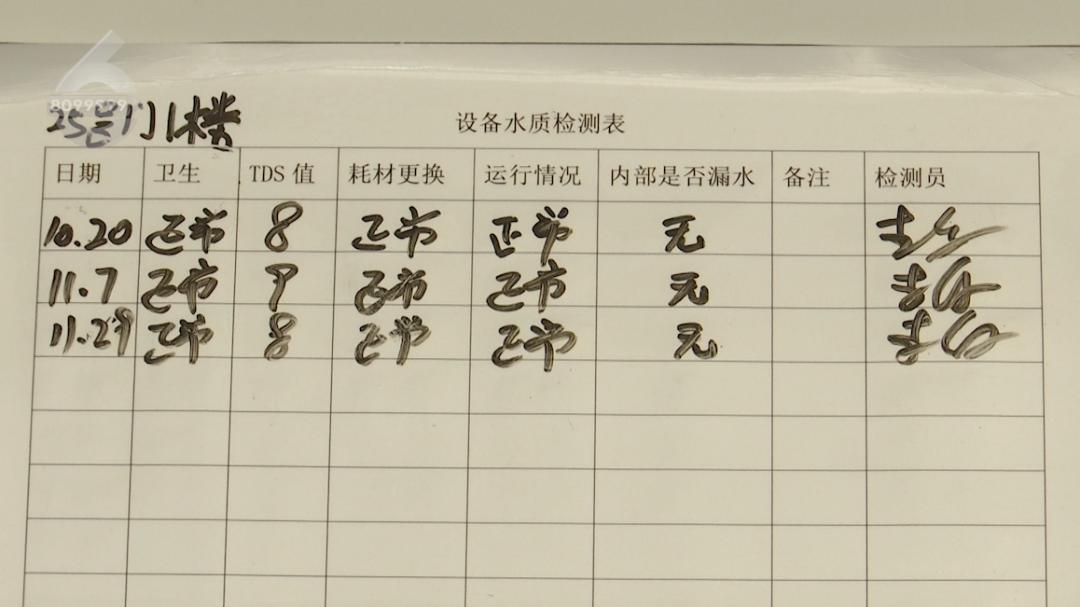 6
8099999
25号门1楼
设备水质检测表
日期 卫生 TDS值 耗材更换 运行情况 内部是否漏水 备注 检测员
10.20 正常 8 正常 正常 无
11.7 正常 9 正常 正常 无
11.29 正常 8 正常 正常 无